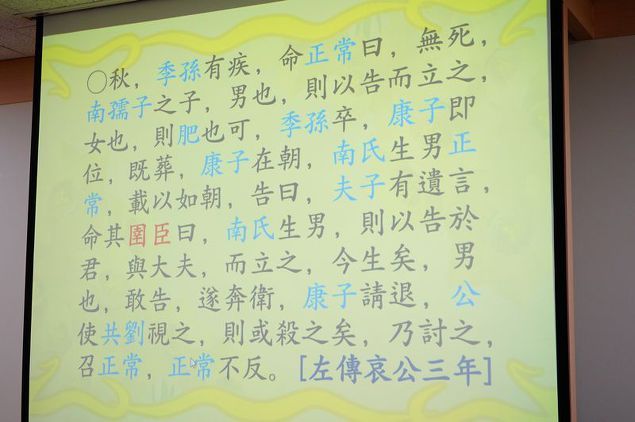 ○秋，季孫有疾，命正常曰，無死，
南孺子之子，男也，則以告而立之，
女也，則肥也可，季孫卒，康子即
位，既葬，康子在朝，南氏生男正
常，載以如朝，告曰，夫子有遺言，
命其圉臣曰，南氏生男，則以告於
君，與大夫，而立之，今生矣，男
也，敢告，遂奔衛，康子請退，公
使共劉視之，則或殺之矣，乃討之，
召正常，正常不反。[左傳哀公三年]